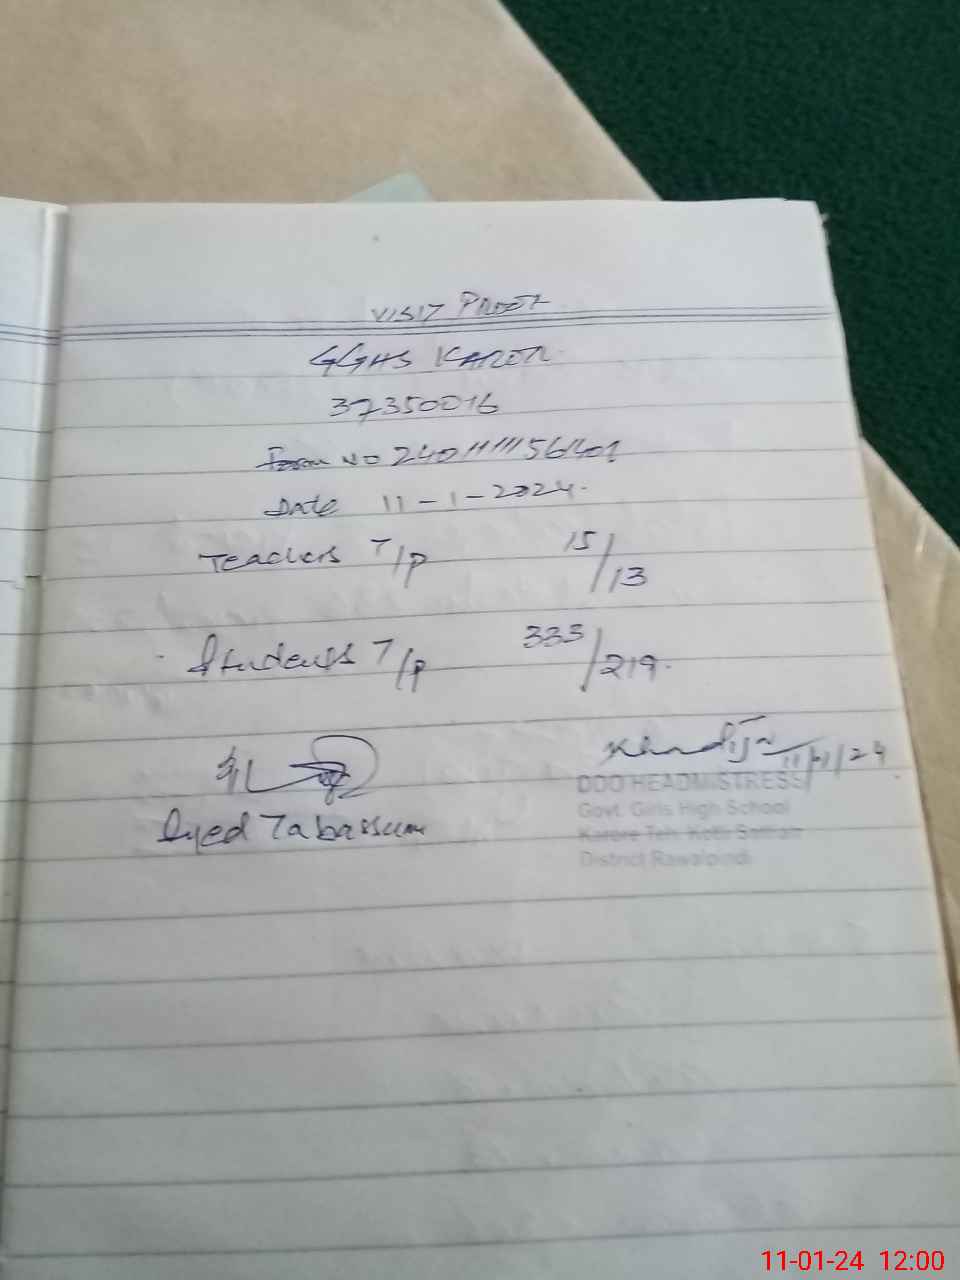 VISIT PROOF
GGHS KAROR
37350016
Form NO
Date 11-1-2024.
Teachers T/P 15/13
Students T/P 333/219.
Khadija 11/1/24
Syed Tabassum
DDO HEADMISTRESS
Govt. Girls High School
Karore Teh. Kotli Sattian
District Rawalpindi
11-01-24 12:00